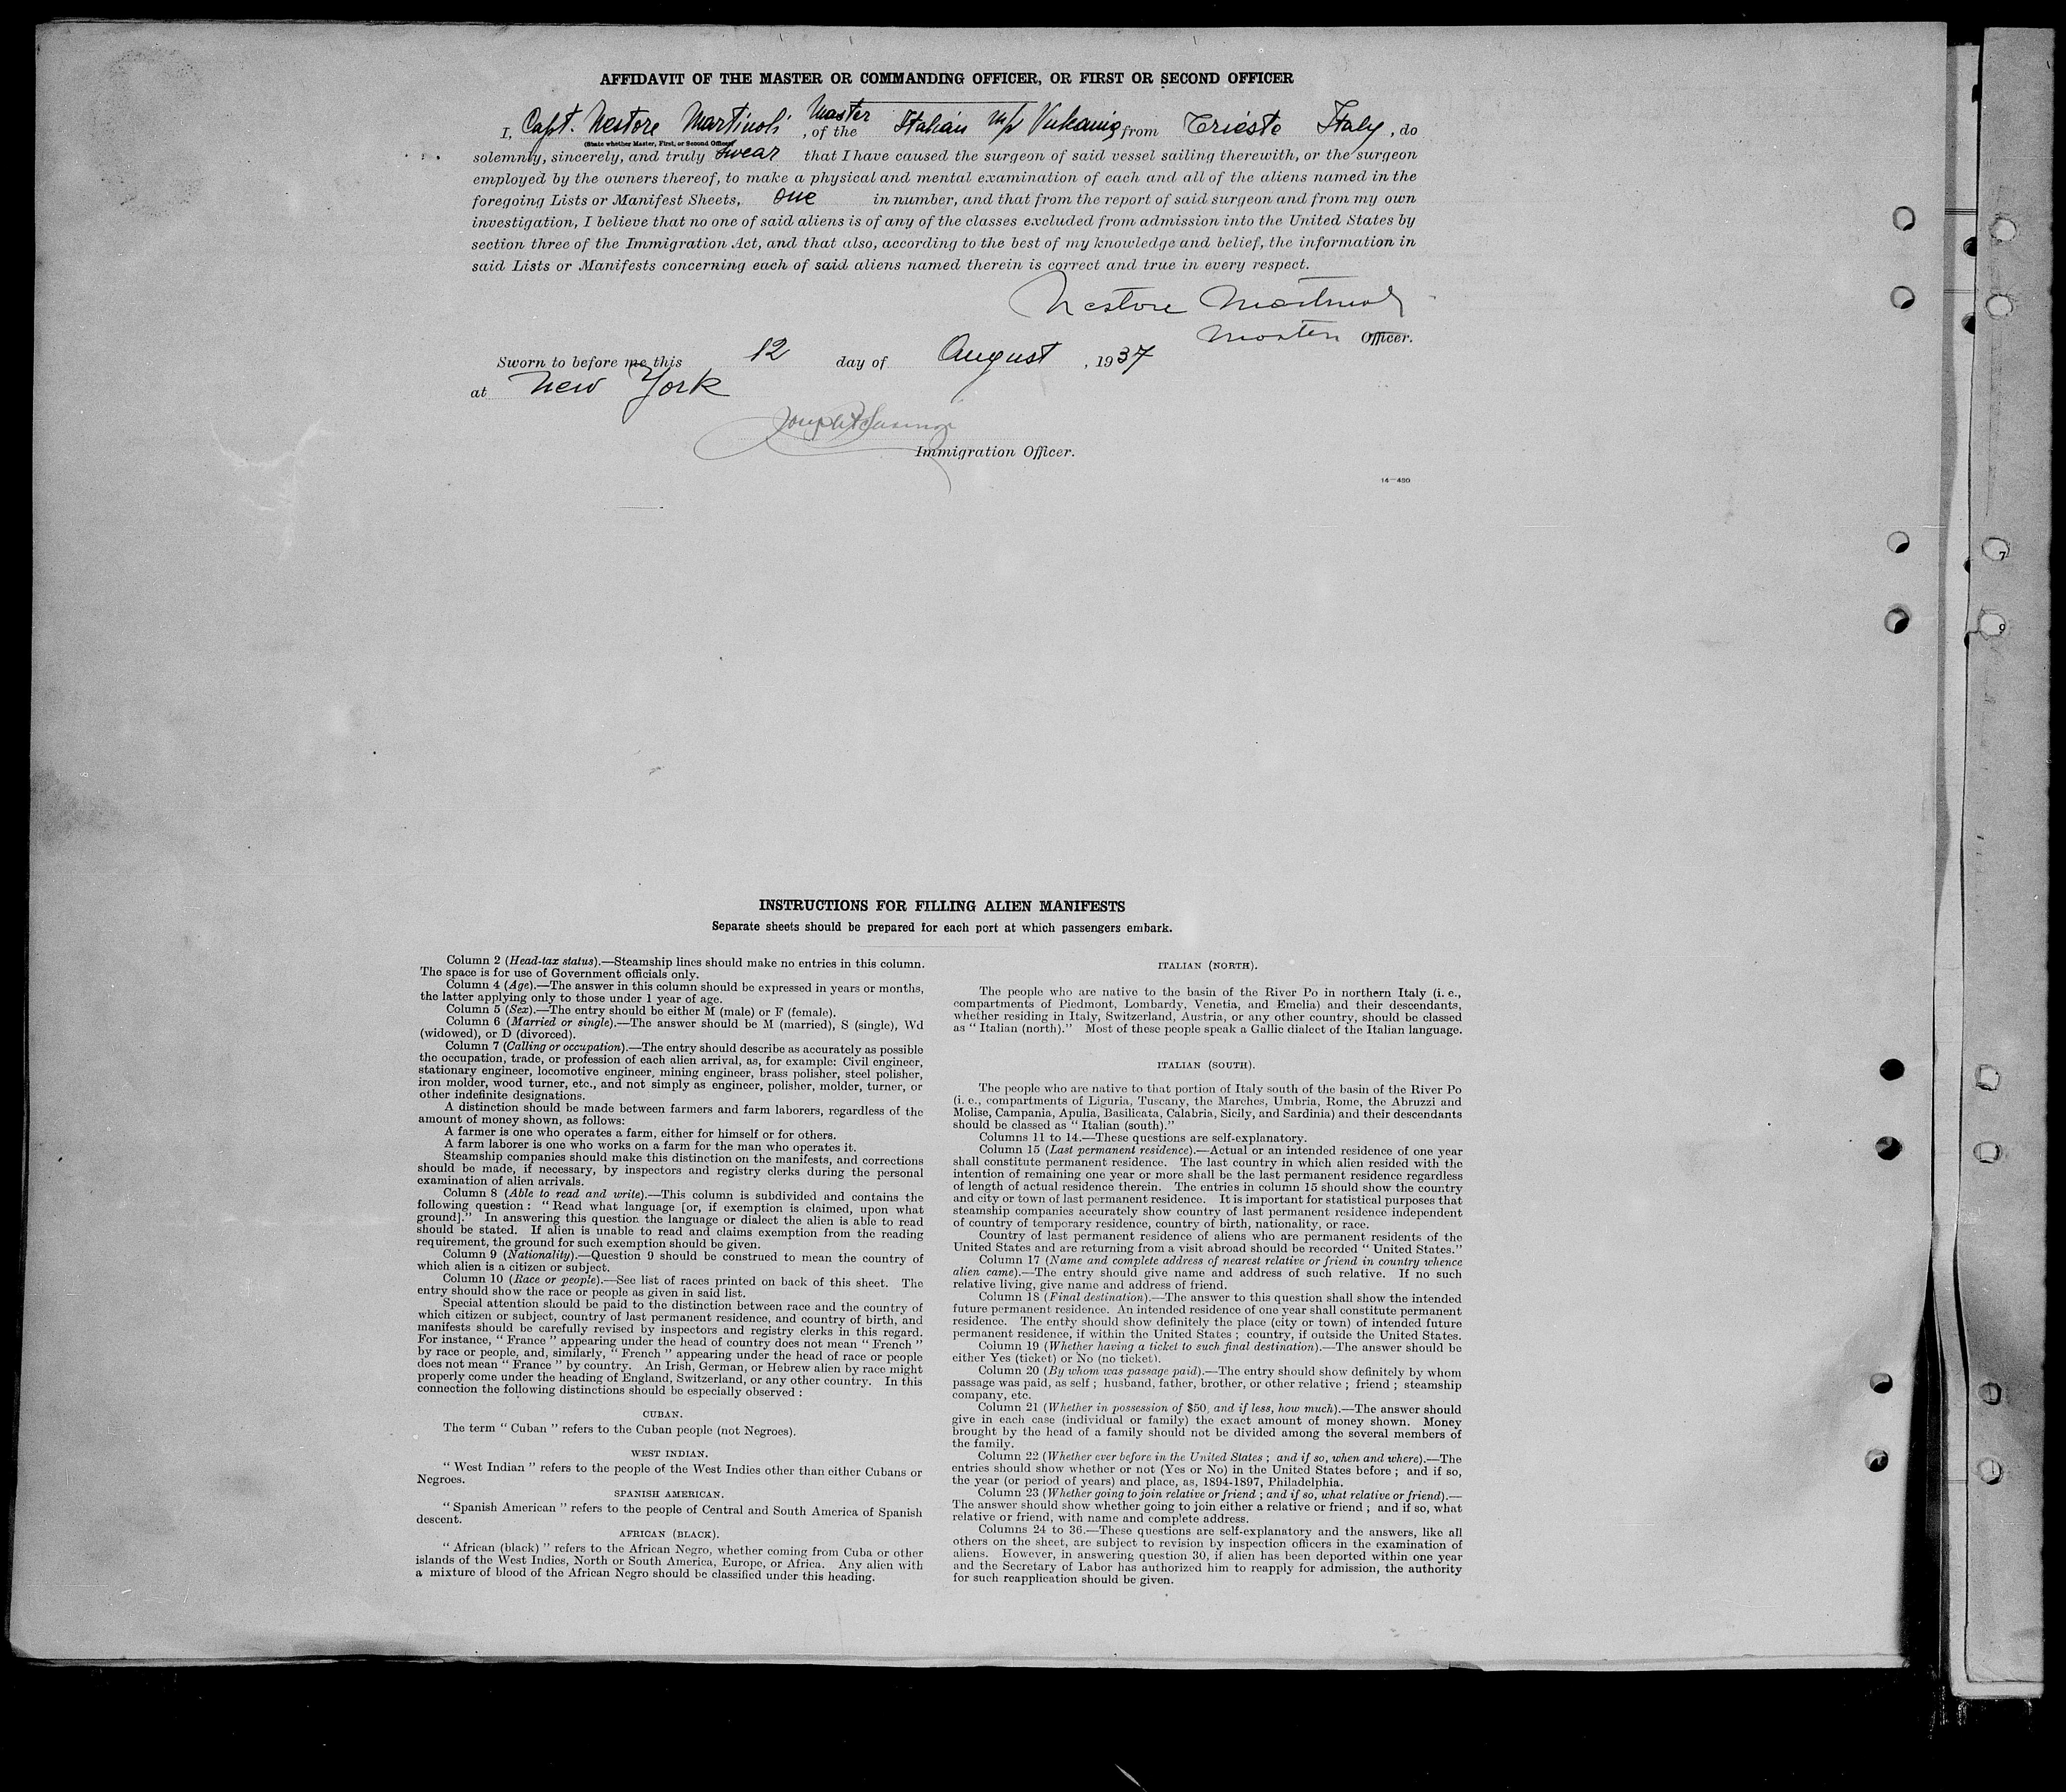 AFFIDAVIT OF THE MASTER OR COMMANDING OFFICER, OR FIRST OR SECOND OFFICER
I, Capt. Nestore Martinoli Master, of the Italian M/s Vulcania from Trieste Italy, do
(State whether Master, First, or Second Officer)
solemnly, sincerely, and truly swear that I have caused the surgeon of said vessel sailing therewith, or the surgeon
employed by the owners thereof, to make a physical and mental examination of each and all of the aliens named in the
foregoing Lists or Manifest Sheets, one in number, and that from the report of said surgeon and from my own
investigation, I believe that no one of said aliens is of any of the classes excluded from admission into the United States by
section three of the Immigration Act, and that also, according to the best of my knowledge and belief, the information in
said Lists or Manifests concerning each of said aliens named therein is correct and true in every respect.
Nestore Martinoli
Master Officer.
Sworn to before me this 12 day of August, 1937
at New York
Immigration Officer.
14—490
INSTRUCTIONS FOR FILLING ALIEN MANIFESTS
Separate sheets should be prepared for each port at which passengers embark.
Column 2 (Head-tax status).—Steamship lines should make no entries in this column.
The space is for use of Government officials only.
Column 4 (Age).—The answer in this column should be expressed in years or months,
the latter applying only to those under 1 year of age.
Column 5 (Sex).—The entry should be either M (male) or F (female).
Column 6 (Married or single).—The answer should be M (married), S (single), Wd
(widowed), or D (divorced).
Column 7 (Calling or occupation).—The entry should describe as accurately as possible
the occupation, trade, or profession of each alien arrival, as, for example: Civil engineer,
stationary engineer, locomotive engineer, mining engineer, brass polisher, steel polisher,
iron molder, wood turner, etc., and not simply as engineer, polisher, molder, turner, or
other indefinite designations.
A distinction should be made between farmers and farm laborers, regardless of the
amount of money shown, as follows:
A farmer is one who operates a farm, either for himself or for others.
A farm laborer is one who works on a farm for the man who operates it.
Steamship companies should make this distinction on the manifests, and corrections
should be made, if necessary, by inspectors and registry clerks during the personal
examination of alien arrivals.
Column 8 (Able to read and write).—This column is subdivided and contains the
following question : “ Read what language [or, if exemption is claimed, upon what
ground].” In answering this question the language or dialect the alien is able to read
should be stated. If alien is unable to read and claims exemption from the reading
requirement, the ground for such exemption should be given.
Column 9 (Nationality).—Question 9 should be construed to mean the country of
which alien is a citizen or subject.
Column 10 (Race or people).—See list of races printed on back of this sheet. The
entry should show the race or people as given in said list.
Special attention should be paid to the distinction between race and the country of
which citizen or subject, country of last permanent residence, and country of birth, and
manifests should be carefully revised by inspectors and registry clerks in this regard.
For instance, “ France ” appearing under the head of country does not mean “ French ”
by race or people, and, similarly, “ French ” appearing under the head of race or people
does not mean “ France ” by country. An Irish, German, or Hebrew alien by race might
properly come under the heading of England, Switzerland, or any other country. In this
connection the following distinctions should be especially observed :
CUBAN.
The term “ Cuban ” refers to the Cuban people (not Negroes).
WEST INDIAN.
“ West Indian ” refers to the people of the West Indies other than either Cubans or
Negroes.
SPANISH AMERICAN.
“ Spanish American ” refers to the people of Central and South America of Spanish
descent.
AFRICAN (BLACK).
“ African (black) ” refers to the African Negro, whether coming from Cuba or other
islands of the West Indies, North or South America, Europe, or Africa. Any alien with
a mixture of blood of the African Negro should be classified under this heading.
ITALIAN (NORTH).
The people who are native to the basin of the River Po in northern Italy (i. e.,
compartments of Piedmont, Lombardy, Venetia, and Emelia) and their descendants,
whether residing in Italy, Switzerland, Austria, or any other country, should be classed
as “ Italian (north).” Most of these people speak a Gallic dialect of the Italian language.
ITALIAN (SOUTH).
The people who are native to that portion of Italy south of the basin of the River Po
(i. e., compartments of Liguria, Tuscany, the Marches, Umbria, Rome, the Abruzzi and
Molise, Campania, Apulia, Basilicata, Calabria, Sicily, and Sardinia) and their descendants
should be classed as “ Italian (south).”
Columns 11 to 14.—These questions are self-explanatory.
Column 15 (Last permanent residence).—Actual or an intended residence of one year
shall constitute permanent residence. The last country in which alien resided with the
intention of remaining one year or more shall be the last permanent residence regardless
of length of actual residence therein. The entries in column 15 should show the country
and city or town of last permanent residence. It is important for statistical purposes that
steamship companies accurately show country of last permanent residence independent
of country of temporary residence, country of birth, nationality, or race.
Country of last permanent residence of aliens who are permanent residents of the
United States and are returning from a visit abroad should be recorded “ United States.”
Column 17 (Name and complete address of nearest relative or friend in country whence
alien came).—The entry should give name and address of such relative. If no such
relative living, give name and address of friend.
Column 18 (Final destination).—The answer to this question shall show the intended
future permanent residence. An intended residence of one year shall constitute permanent
residence. The entry should show definitely the place (city or town) of intended future
permanent residence, if within the United States ; country, if outside the United States.
Column 19 (Whether having a ticket to such final destination).—The answer should be
either Yes (ticket) or No (no ticket).
Column 20 (By whom was passage paid).—The entry should show definitely by whom
passage was paid, as self ; husband, father, brother, or other relative ; friend ; steamship
company, etc.
Column 21 (Whether in possession of $50, and if less, how much).—The answer should
give in each case (individual or family) the exact amount of money shown. Money
brought by the head of a family should not be divided among the several members of
the family.
Column 22 (Whether ever before in the United States ; and if so, when and where).—The
entries should show whether or not (Yes or No) in the United States before ; and if so,
the year (or period of years) and place, as, 1894-1897, Philadelphia.
Column 23 (Whether going to join relative or friend ; and if so, what relative or friend).—
The answer should show whether going to join either a relative or friend ; and if so, what
relative or friend, with name and complete address.
Columns 24 to 36.—These questions are self-explanatory and the answers, like all
others on the sheet, are subject to revision by inspection officers in the examination of
aliens. However, in answering question 30, if alien has been deported within one year
and the Secretary of Labor has authorized him to reapply for admission, the authority
for such reapplication should be given.